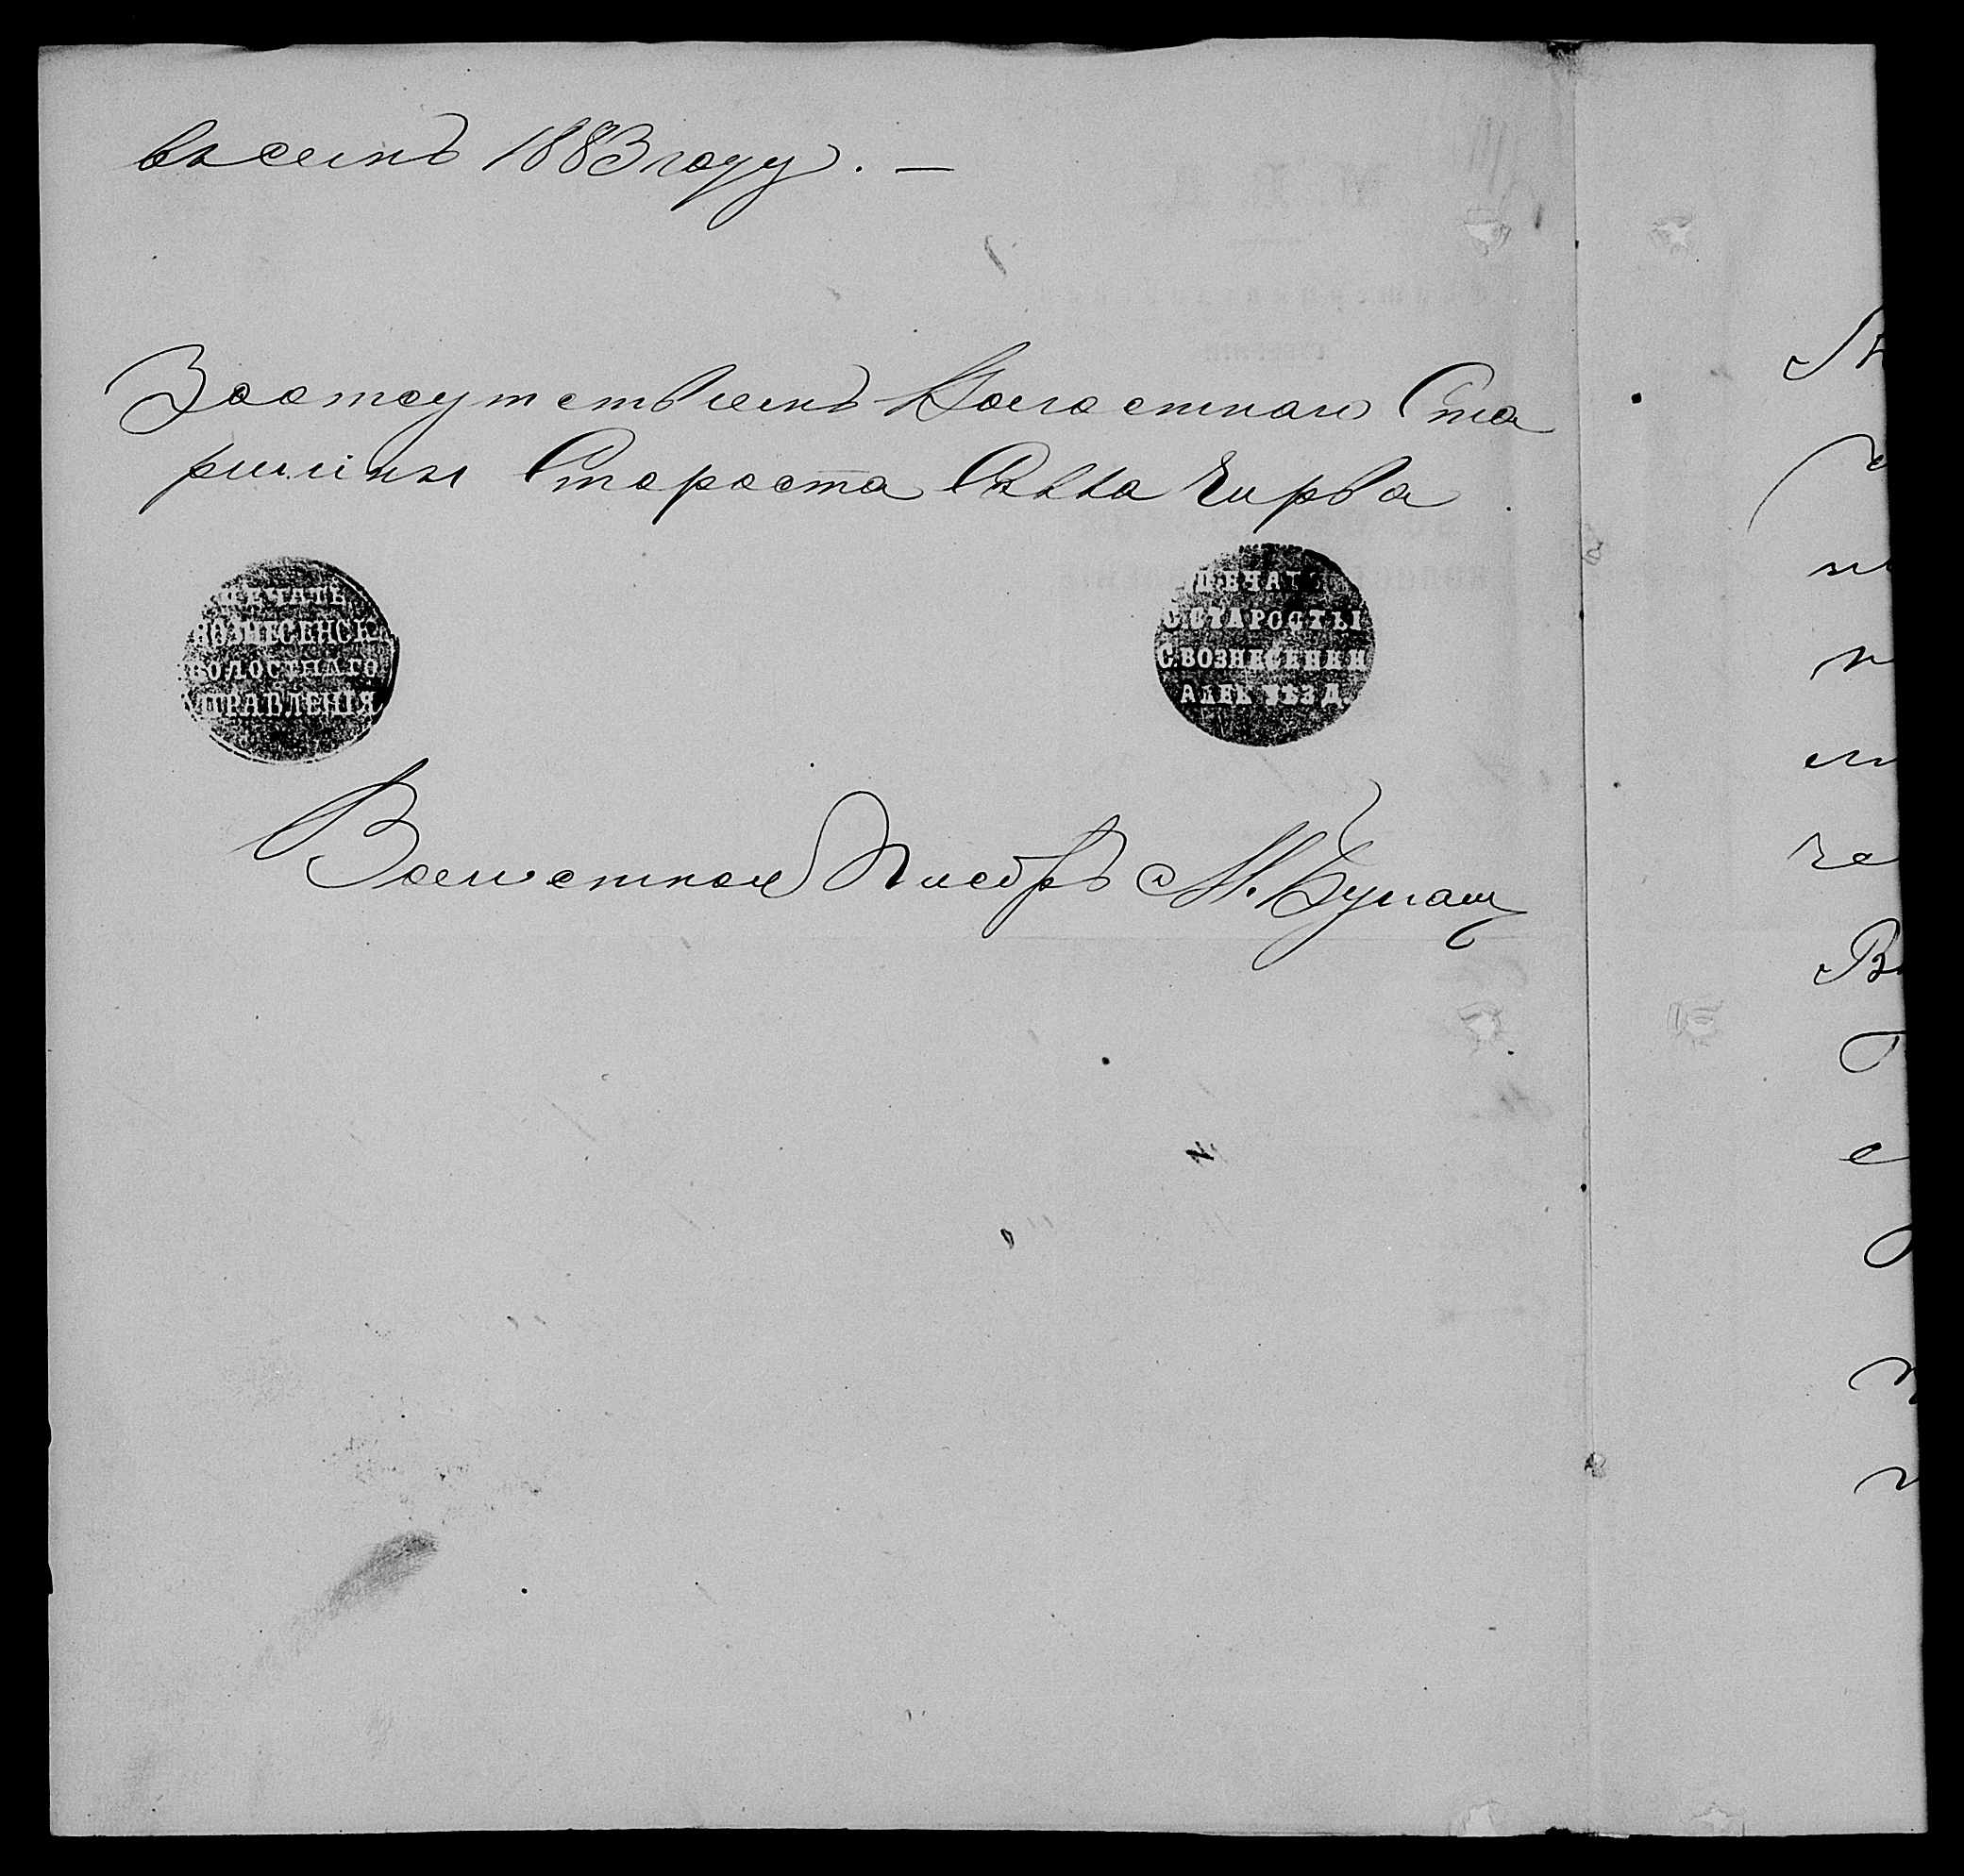 въ семъ 1883 году. —
За отсутствіемъ Волостнаго Ста
ршины Староста Савва Чирва
ПЕЧАТЬ
ВОЗНЕСЕНСК
ВОЛОСТНАГО
ПРАВЛЕНІЯ
ПЕЧАТЬ
С. СТАРОСТЫ
С. ВОЗНЕСЕНКИ
АЛЕК УѢЗД
Волостной Писарь М.